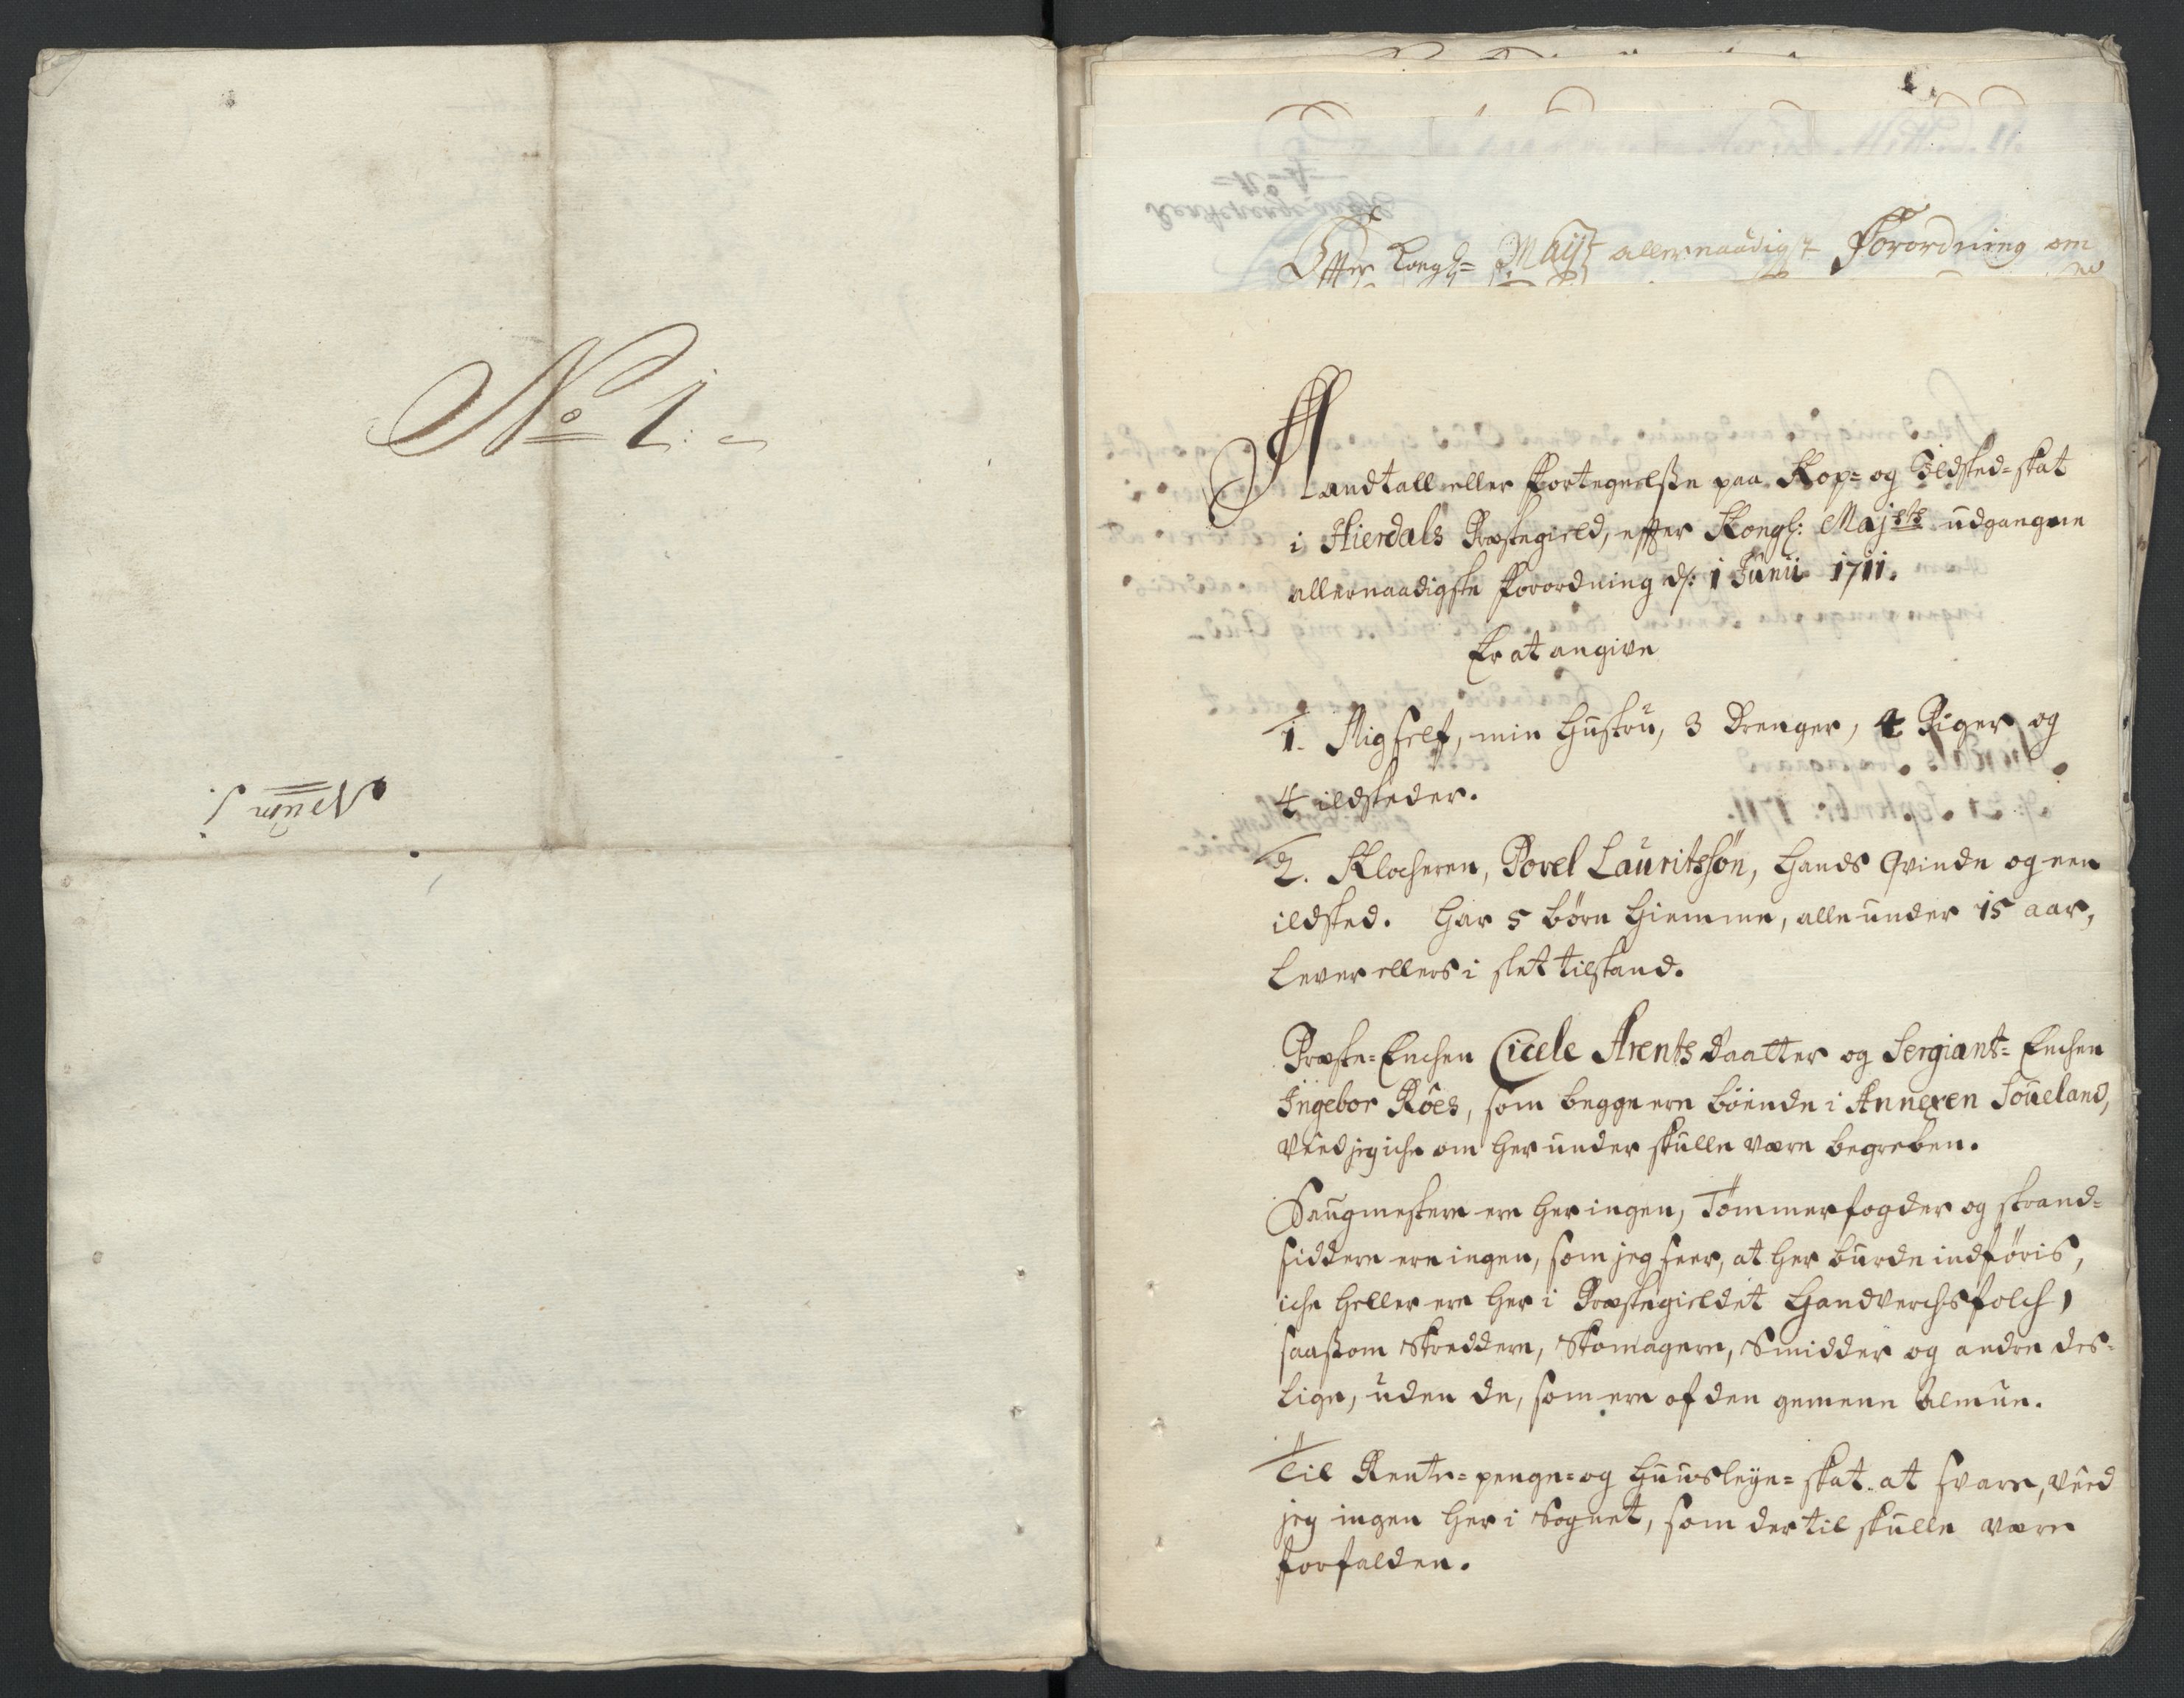 No 1.
Num 1.
Efter Kongl= Mayst allernaadigst Forordning om
Mandtall eller Fortegnelsse paa Kop= og Ildsted=skat
i Hierdals Præstegield, efter Kongl: Majsts udgangne
allernaadigste Forordning ds: 1 Junii 1711.
Er at angive
1. Mig self, min Hustru, 3 Drenger, 4 Piger og
4 ildsteder.
2. Klocheren, Povel Lauritssøn, hands Qvinde og een
ildsted. Har 5 børn hiemme, alle under 15 aar,
Lever ellers i slet tilstand.
Præste=Enchen Cicele Arents Daatter og Sergiant= Enchen
Ingebor Röes, som begge ere böende i Annexen Soueland,
veed jeg iche om her under skulle være begreben.
Saugmestere ere her ingen, Tømmerfogder og strand=
siddere ere ingen, som jeg seer, at her burde indføris,
iche heller ere her i Præstegieldet Handverchsfolch,
saassom Skreddere, Skomagere, Smidder og andre des=
lige, uden de, som ere af den gemene Almue.
Til Rente=penge= og Huusleye= skat at svare, veed
jeg ingen her i Sognet, som der til skulle være
forfalden.